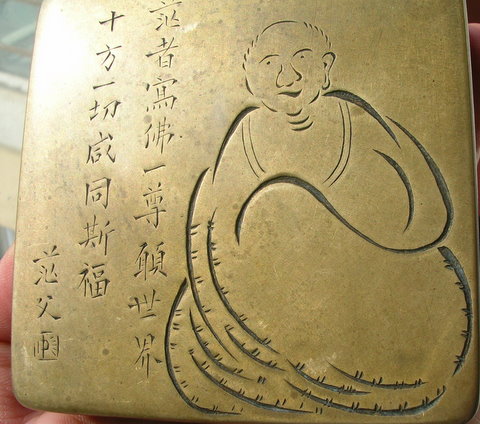 茫者寫佛一尊願世界
十方一切咸同斯福
茫父